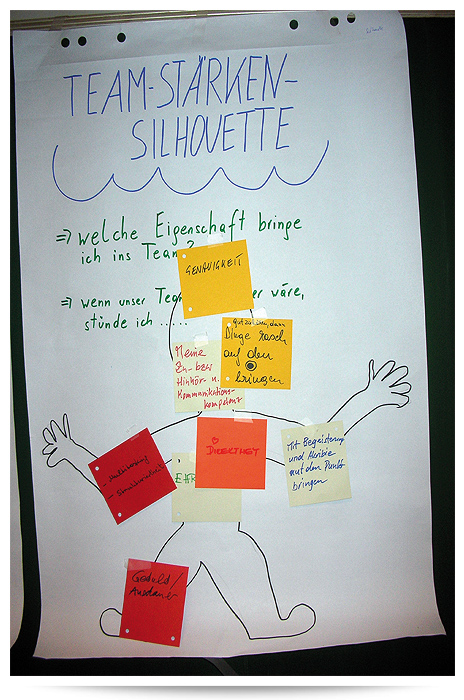 TEAM-STÄRKEN-
SILHOUETTE
⇒ welche Eigenschaft bringe
ich ins Team?
GENAUIGKEIT
⇒ wenn unser Tea er wäre,
stünde ich .....
Gut zuhören, dann
Dinge rasch
auf den
bringen
Meine
Zu- bzw
Hinhör u.
Kommunikations-
kompetenz
DIREKTHEIT
Mit Begeisterung
und Akribie
auf den Punkt
bringen
EHR
Geduld/
Ausdauer